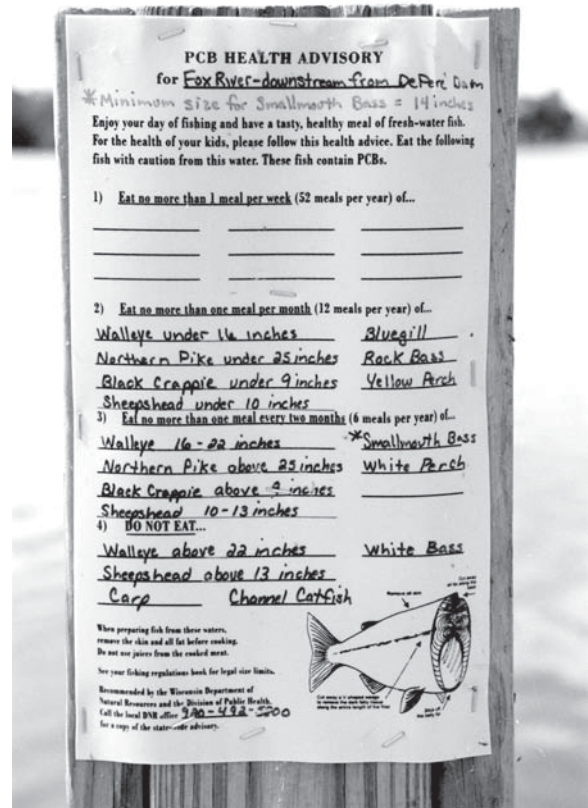 PCB HEALTH ADVISORY
for Fox River-downstream from DePere Dam
*Minimum size for Smallmouth Bass = 14 inches
Enjoy your day of fishing and have a tasty, healthy meal of fresh-water fish.
For the health of your kids, please follow this health advice. Eat the following
fish with caution from this water. These fish contain PCBs.
1) Eat no more than 1 meal per week (52 meals per year) of...
2) Eat no more than one meal per month (12 meals per year) of...
Walleye under 16 inches Bluegill
Northern Pike under 25 inches Rock Bass
Black Crappie under 9 inches Yellow Perch
Sheepshead under 10 inches
3) Eat no more than one meal every two months (6 meals per year) of...
Walleye 16-22 inches *Smallmouth Bass
Northern Pike above 25 inches White Perch
Black Crappie above 9 inches
Sheepshead 10-13 inches
4) DO NOT EAT...
Walleye above 22 inches White Bass
Sheepshead above 13 inches
Carp Channel Catfish
When preparing fish from these waters,
remove the skin and all fat before cooking.
Do not use juices from the cooked meat.
See your fishing regulations book for legal size limits.
Recommended by the Wisconsin Department of
Natural Resources and the Division of Public Health.
Call the local DNR office 920-492-5800
for a copy of the state-wide advisory.
Remove all skin
Cut away a V-shaped wedge
to remove the dark fatty tissue
along the entire length of the fillet